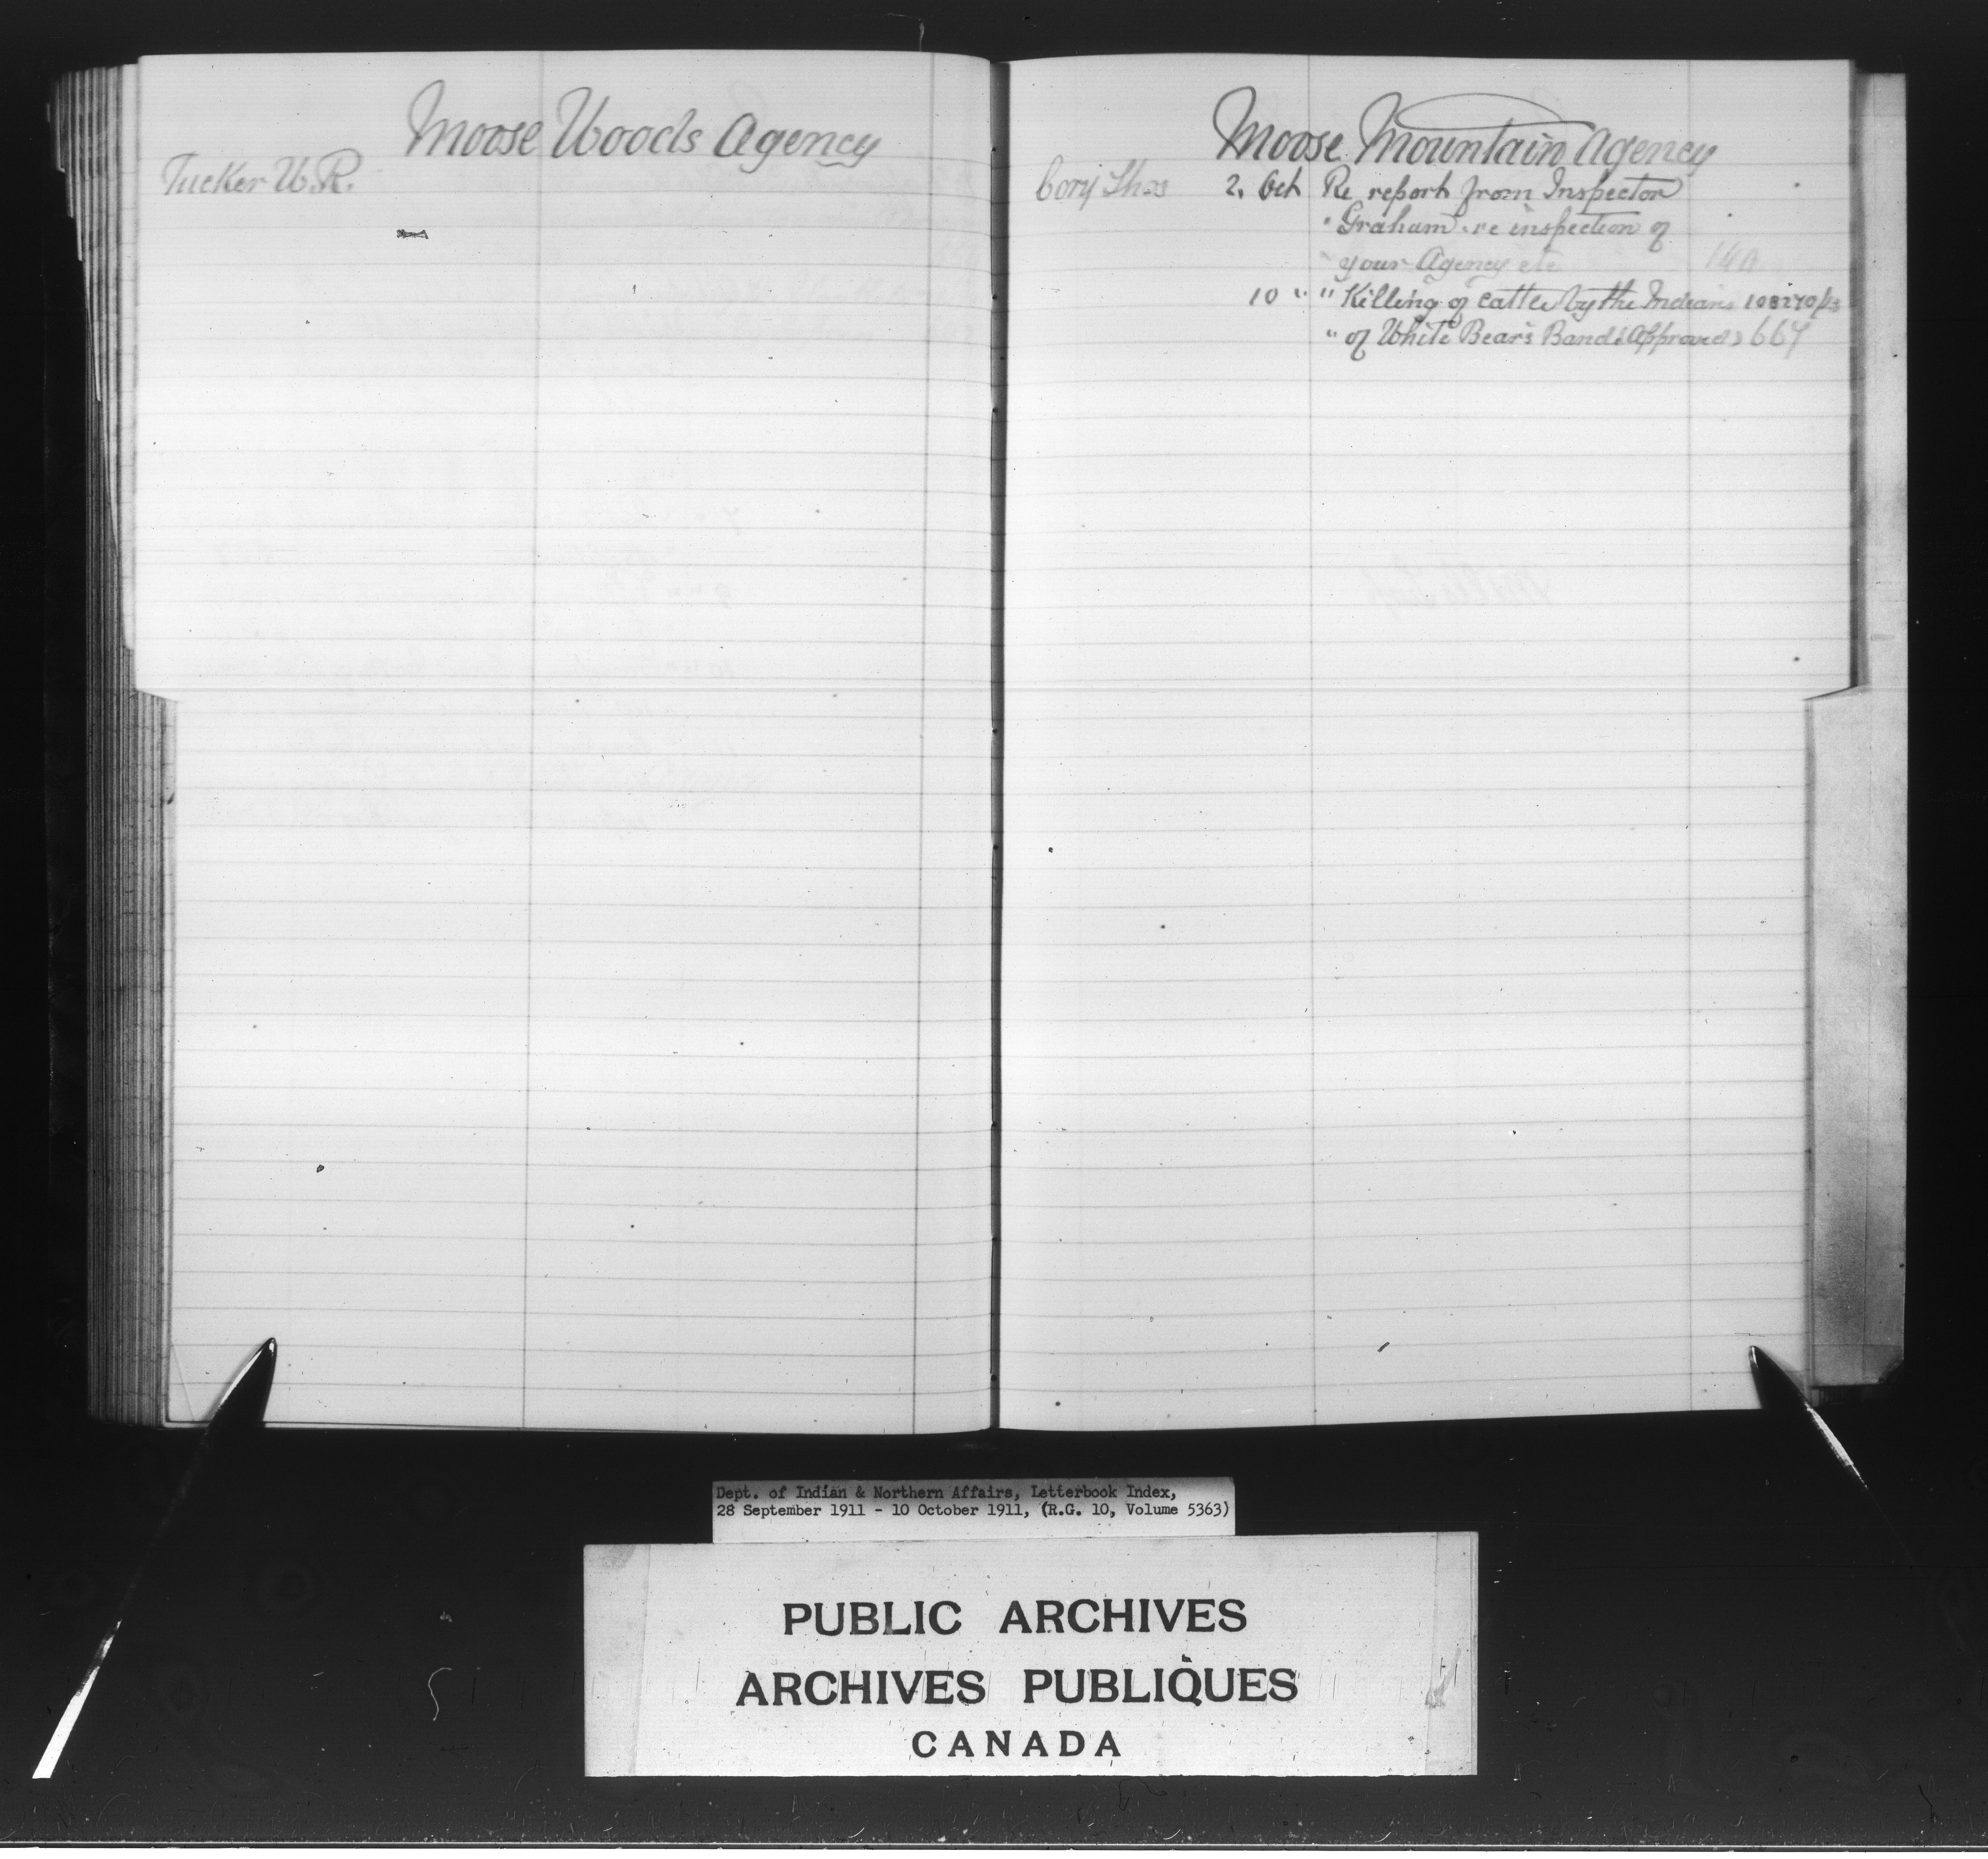 Moose Woods Agency
Tucker W. R.
Moose Mountain Agency
Cory Thos 2. Oct Re report from Inspector
" Graham re inspection of
" your Agency etc 140
10 " " Killing of cattle by the Indians 108270/23
" of White Bear's Band (Approved) 667
Dept. of Indian & Northern Affairs, Letterbook Index,
28 September 1911 - 10 October 1911, (R.G. 10, Volume 5363)
PUBLIC ARCHIVES
ARCHIVES PUBLIQUES
CANADA